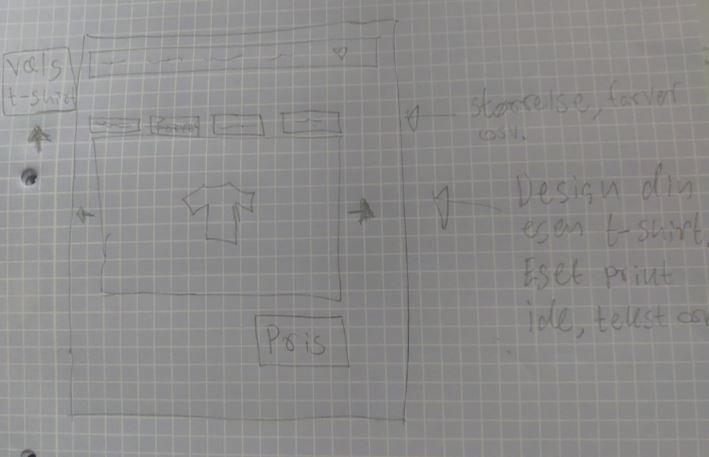 Vælg
t-shirt
størrelse, farver
osv.
Design din
egen t-shirt.
Eget print
ide, tekst osv
Pris